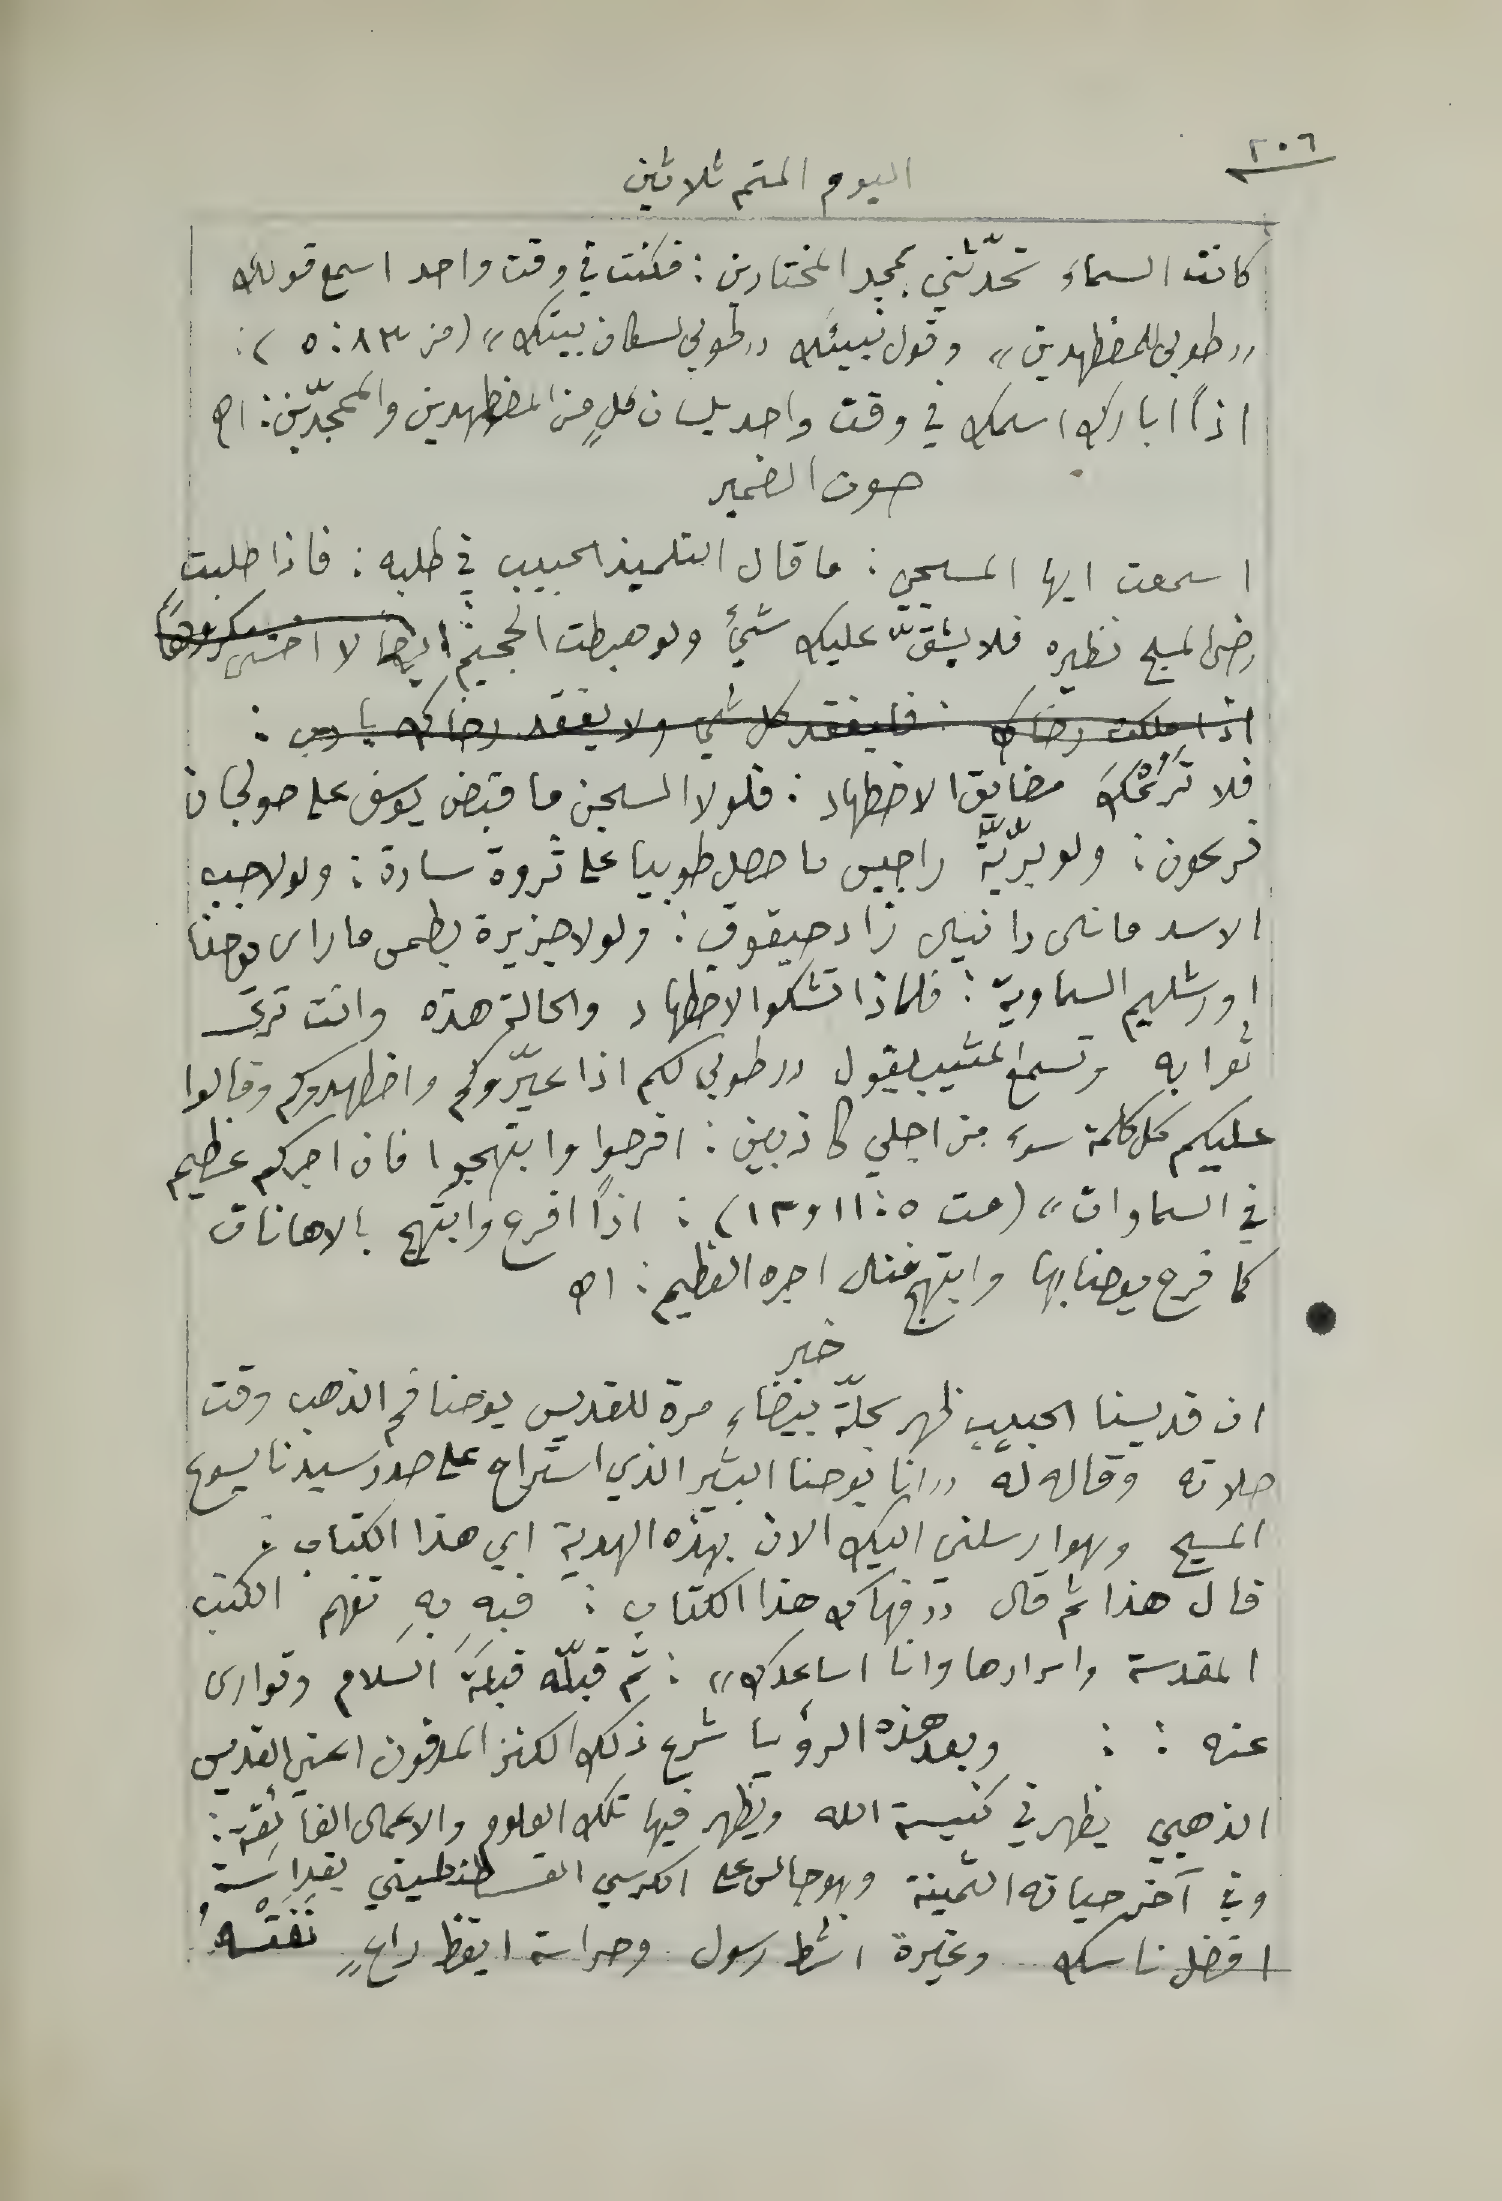 ٢٠٦
اليوم المتم ثلاثين
كانت السماء تحدّثني بمجد المختارين : فكنت في وقت واحد اسمع قولك
«طوبى للمضطهدين» وقول نبيئك «طوبى لسكان بيتك» (مز ٨٣ : ٥) :
اذاً ابارك اسمك في وقت واحد بلسان كلٍ من المضطهدين والممجدّين : اه
صوت الضمير
اسمعت ايها المسيحي : ما قال التلميذ الحبيب في طلبه : فاذا طلبت
رضى المسيح نظيره فلا يشقّ عليك شيٌ ولو هبطت الجحيم ايضا لا اخشى مكروهاً
اذا ملكت رضاك : فليفقد كل شي ولا يفقد رضاك يا رب :
فلا تَرُعْكَ مضايق الاضطهاد : فلولا السجن ما قبض يوسف على صولجان
فرعون : ولو برّيّة راجيس ما حصل طوبيا على ثروة سارة : ولولا جب
الاسد ما نال دانيال زاد حبقوق : ولولا جزيرة بطمس ما راى يوحنا
اورشليم السماوية : فلماذا تشكو الاضطهاد والحالة هذه وانت ترى
ثوابه وتسمع المثيب يقول «طوبى لكم اذا عيّروكم واضطهدوكم وقالوا
عليكم كل كلمة سوء من اجلي كاذبين : افرحوا وابتهجوا فان اجركم عظيم
في السماوات» (مت ٥ : ١١ و ١٢) : اذاً افرح وابتهج بالاهانات
كما فرح يوحنا بها وابتهج فنال اجره العظيم : اه
خبر
ان قديسنا الحبيب ظهر بحلّة بيضاء مرة للقديس يوحنا فم الذهب وقت
صلاته وقال له «انا يوحنا البشير الذي استراح على صدر سيدنا يسوع
المسيح وهو ارسلني اليك الان بهذه الهدية اي هذا الكتاب :
قال هذا ثم قال «فهاك هذا الكتاب : فبه بهِ تفهم الكتب
المقدسة واسرارها وانا اساعدك» : ثم قبّله قبلةَ السلام وتوارى
عنه : : وبعد هذه الرؤيا شرع ذلك الكنز المدفون اعني القديس
الذهبي يظهر في كنيسة الله ويظهر فيها تلك العلوم والاعمال الفائقة :
وفي آخر حياته الثمينة وهو جالس على الكرسي القسطنطيني بقداسة
افضل ناسك وغيرة انشط رسول وحراسة ايقظ راعٍ